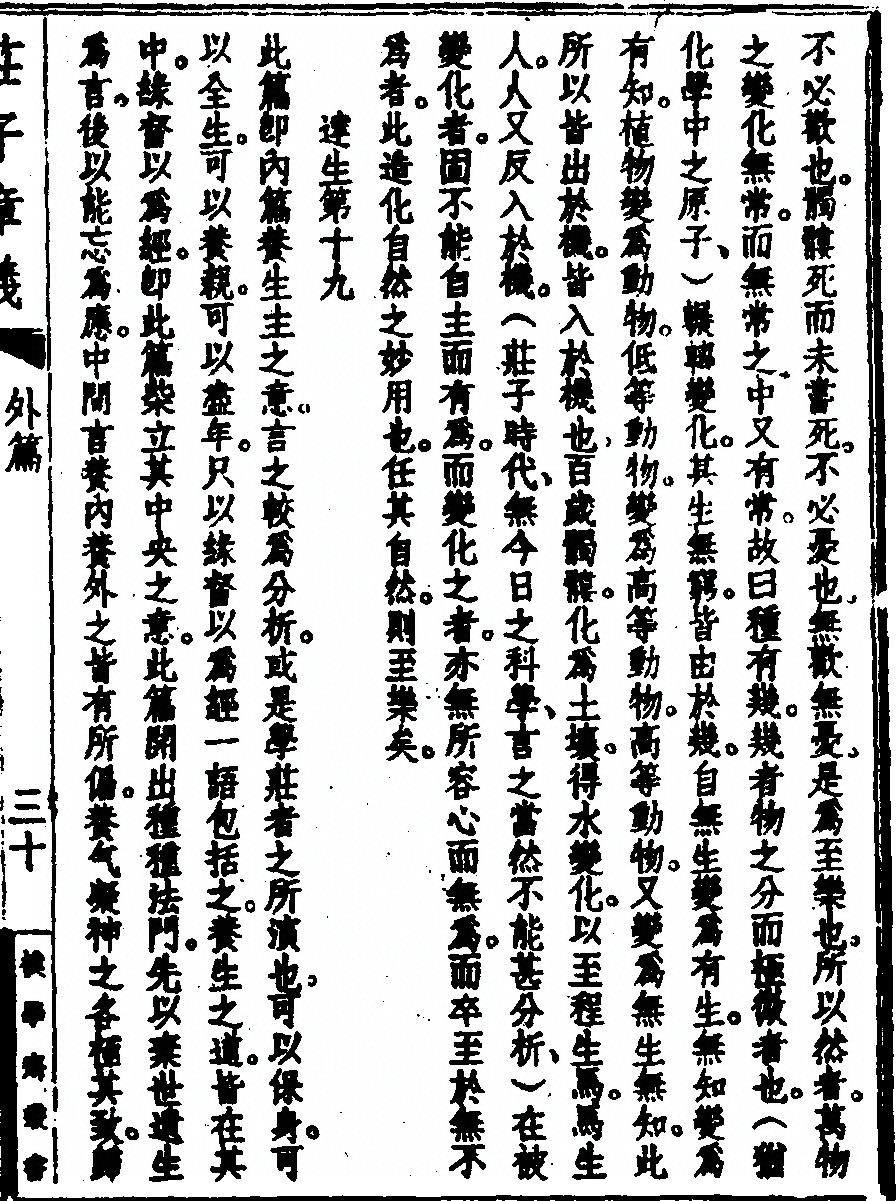 不必歡也。髑髏死而未嘗死。不必憂也。無歡無憂。是爲至樂也。所以然者。萬物
之變化無常。而無常之中又有常。故曰種有幾。幾者物之分而極微者也。（猶
化學中之原子、）輾轉變化。其生無窮。皆由於幾。自無生變爲有生。無知變爲
有知。植物變爲動物。低等動物。變爲高等動物。高等動物。又變爲無生無知。此
所以皆出於機。皆入於機也。百歲髑髏。化爲土壤。得水變化。以至程生馬。馬生
人。人又反入於機。（莊子時代、無今日之科學、言之當然不能甚分析、）在被
變化者。固不能自主而有爲。而變化之者。亦無所容心而無爲。而卒至於無不
爲者。此造化自然之妙用也。任其自然。則至樂矣。
達生第十九
此篇卽內篇養生主之意。言之較爲分析。或是學莊者之所演也。可以保身。可
以全生。可以養親。可以盡年。只以緣督以爲經一語包括之。養生之道。皆在其
中。緣督以爲經。卽此篇柴立其中央之意。此篇開出種種法門。先以棄世遺生
爲言。後以能忘爲應。中間言養內養外之皆有所偏。養气凝神之各極其致。歸
莊子章義
外篇
三十
樸學齋叢書